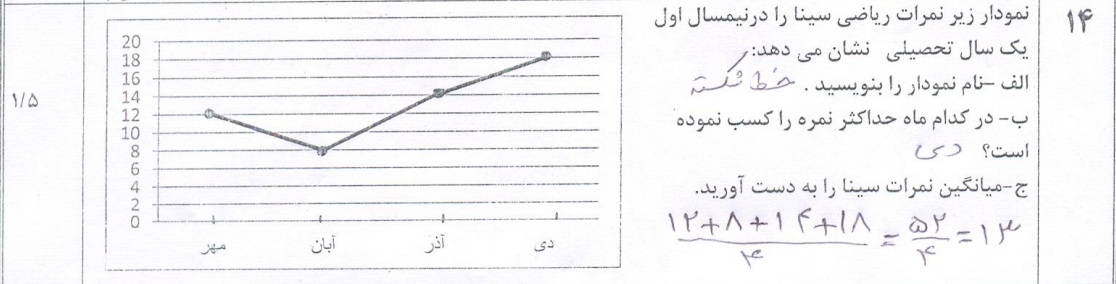 ۱۴
نمودار زیر نمرات ریاضی سینا را درنیمسال اول
یک سال تحصیلی نشان می دهد:
الف -نام نمودار را بنویسید . خط شکسته
ب- در کدام ماه حداکثر نمره را کسب نموده
است؟ دی
ج-میانگین نمرات سینا را به دست آورید.
۱۲+۸+۱۴+۱۸ / ۴ = ۵۲ / ۴ = ۱۳
20
18
16
14
12
10
8
6
4
2
0
مهر آبان آذر دی
۱/۵